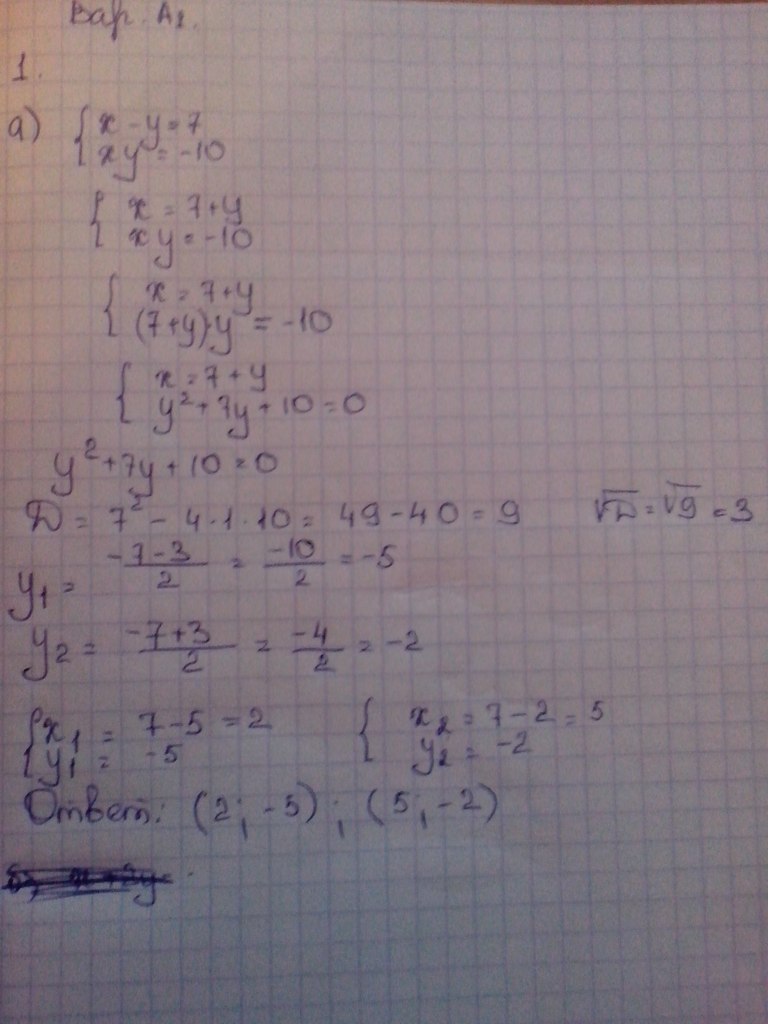 Вар. А1.
1.
а) { x - y = 7
xy = -10
{ x = 7+y
xy = -10
{ x = 7+y
(7+y)·y = -10
{ x = 7+y
y² + 7y + 10 = 0
y² + 7y + 10 = 0
D = 7² - 4·1·10 = 49 - 40 = 9 √D = √9 = 3
y₁ = (-7-3)/2 = -10/2 = -5
y₂ = (-7+3)/2 = -4/2 = -2
{ x₁ = 7-5 = 2 { x₂ = 7-2 = 5
y₁ = -5 y₂ = -2
Ответ: (2; -5) ; (5; -2)